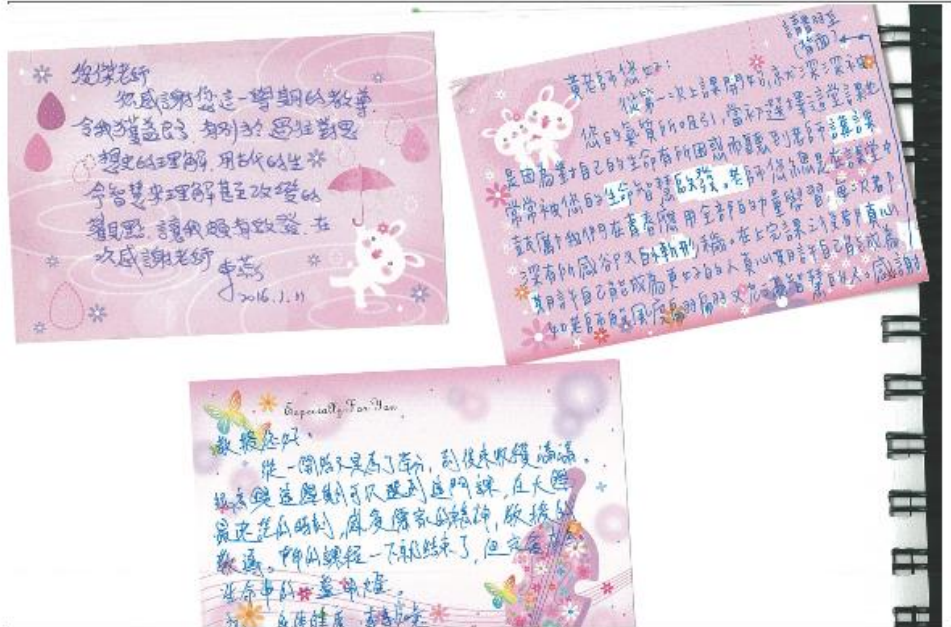 俊傑老師
很感謝您這一學期的教導
令我獲益良多,有別於過往對思
想史的理解,用古代的生
命智慧來理解甚至改變的
觀點,讓我頗有啟發,在
次感謝老師
2016.1.11
請翻至
(背面)
黃老師您好:
從第一次上課開始,就深深被
您的氣質所吸引,當初選擇這堂課也
是因為對自己的生命有所困惑而聽到老師講課
常常被您的生命智慧啟發。老師您總是在課堂中
鼓勵我們在青春應用全部的力量學習,每次看
深有所感
在上完課之後我真心
期許自己能成為更好的人真心期許自己能成為
如老師般風度翩翩又充滿智慧的人。感謝
Especially For You
敬授您好。
從一開始只是為了學分,到後來收穫滿滿。
很高興這學期可以選到這門課,在大學
最迷茫的時刻,感受儒家的精神,教授的
教誨。中的課程一下就結束了,但它會
生命中的一盞明燈。
身體健康